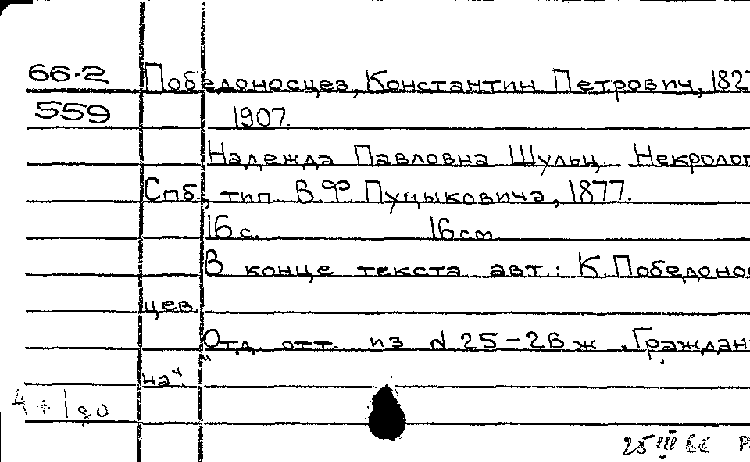 66-2 Победоносцев, Константин Петрович, 182
559 1907.
Надежда Павловна Шульц. Некролог
Спб, тип. В.Ф. Пуцыковича, 1877.
16 с. 16 см.
В конце текста авт.: К. Победонос
цев.
Отд. отт. из N 25-26 ж. „Граждан
на"
25 III 66